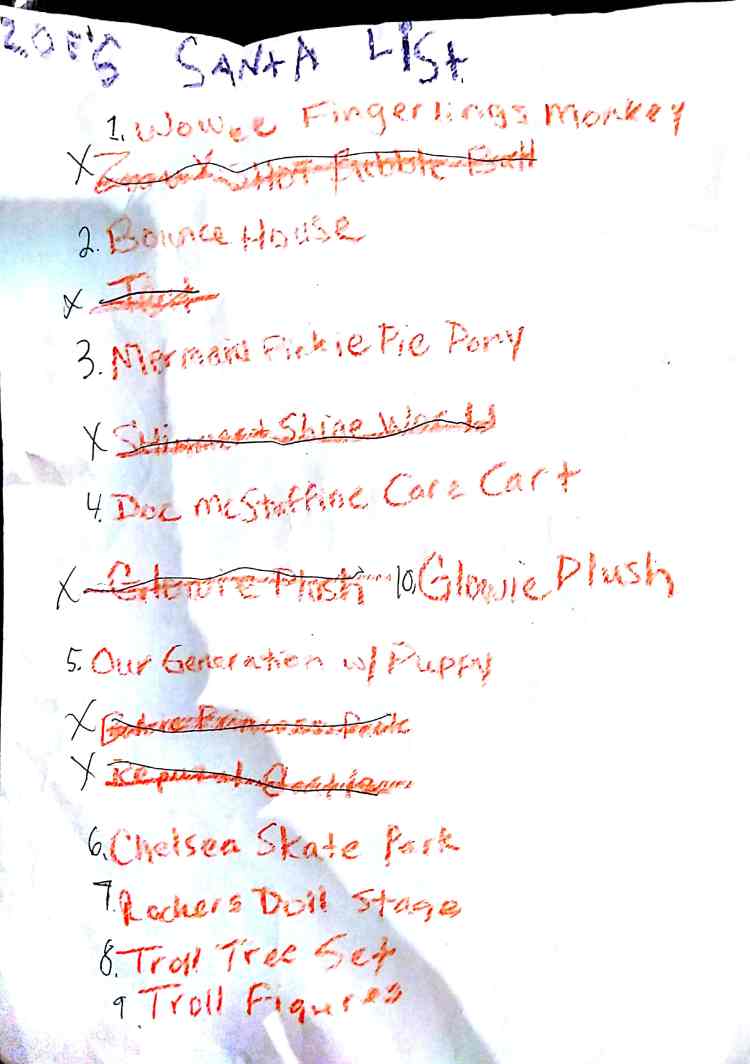 ZOE'S SANTA LIST
1. Wowee Fingerlings Monkey
X Bubble Ball
2. Bounce House
X
3. Mermaid Pinkie Pie Pony
X Shimmer Shine World
4. Doc McStuffine Care Cart
X Glowie Plush 10. Glowie Plush
5. Our Generation w/ Puppy
X Princess
X
6. Chelsea Skate Park
7. Rockers Doll Stage
8. Troll Tree Set
9. Troll Figures